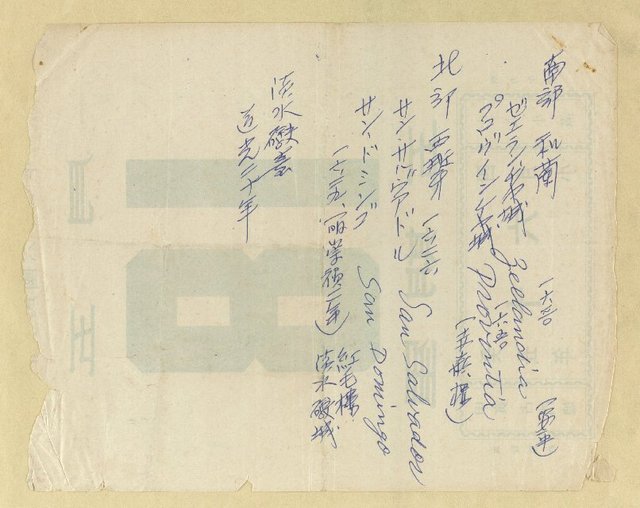 南部 和蘭
ゼエランヂヤ城 Zeelandia 一六三〇 (安平)
プロヴインシヤ城 Provintia 一六五〇 (赤嵌樓)
北部 西班牙 一六二六
サン・サルヴアドル San Salvador
サン・ドミンゴ San Domingo 紅毛樓
一六二九、(崇禎二年) 淡水礮城
淡水礮臺
道光二十年